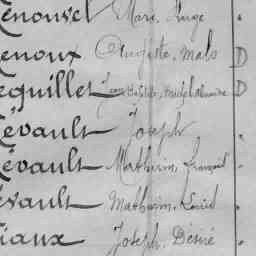 Renouvel Marie Ange
Renoux Auguste, Malo D
Requillet Jean Baptiste, Michel Alexandre D
Révault Joseph
Révault Mathurin, françois
Révault Mathurin, Louis
Riaux Joseph, Désiré